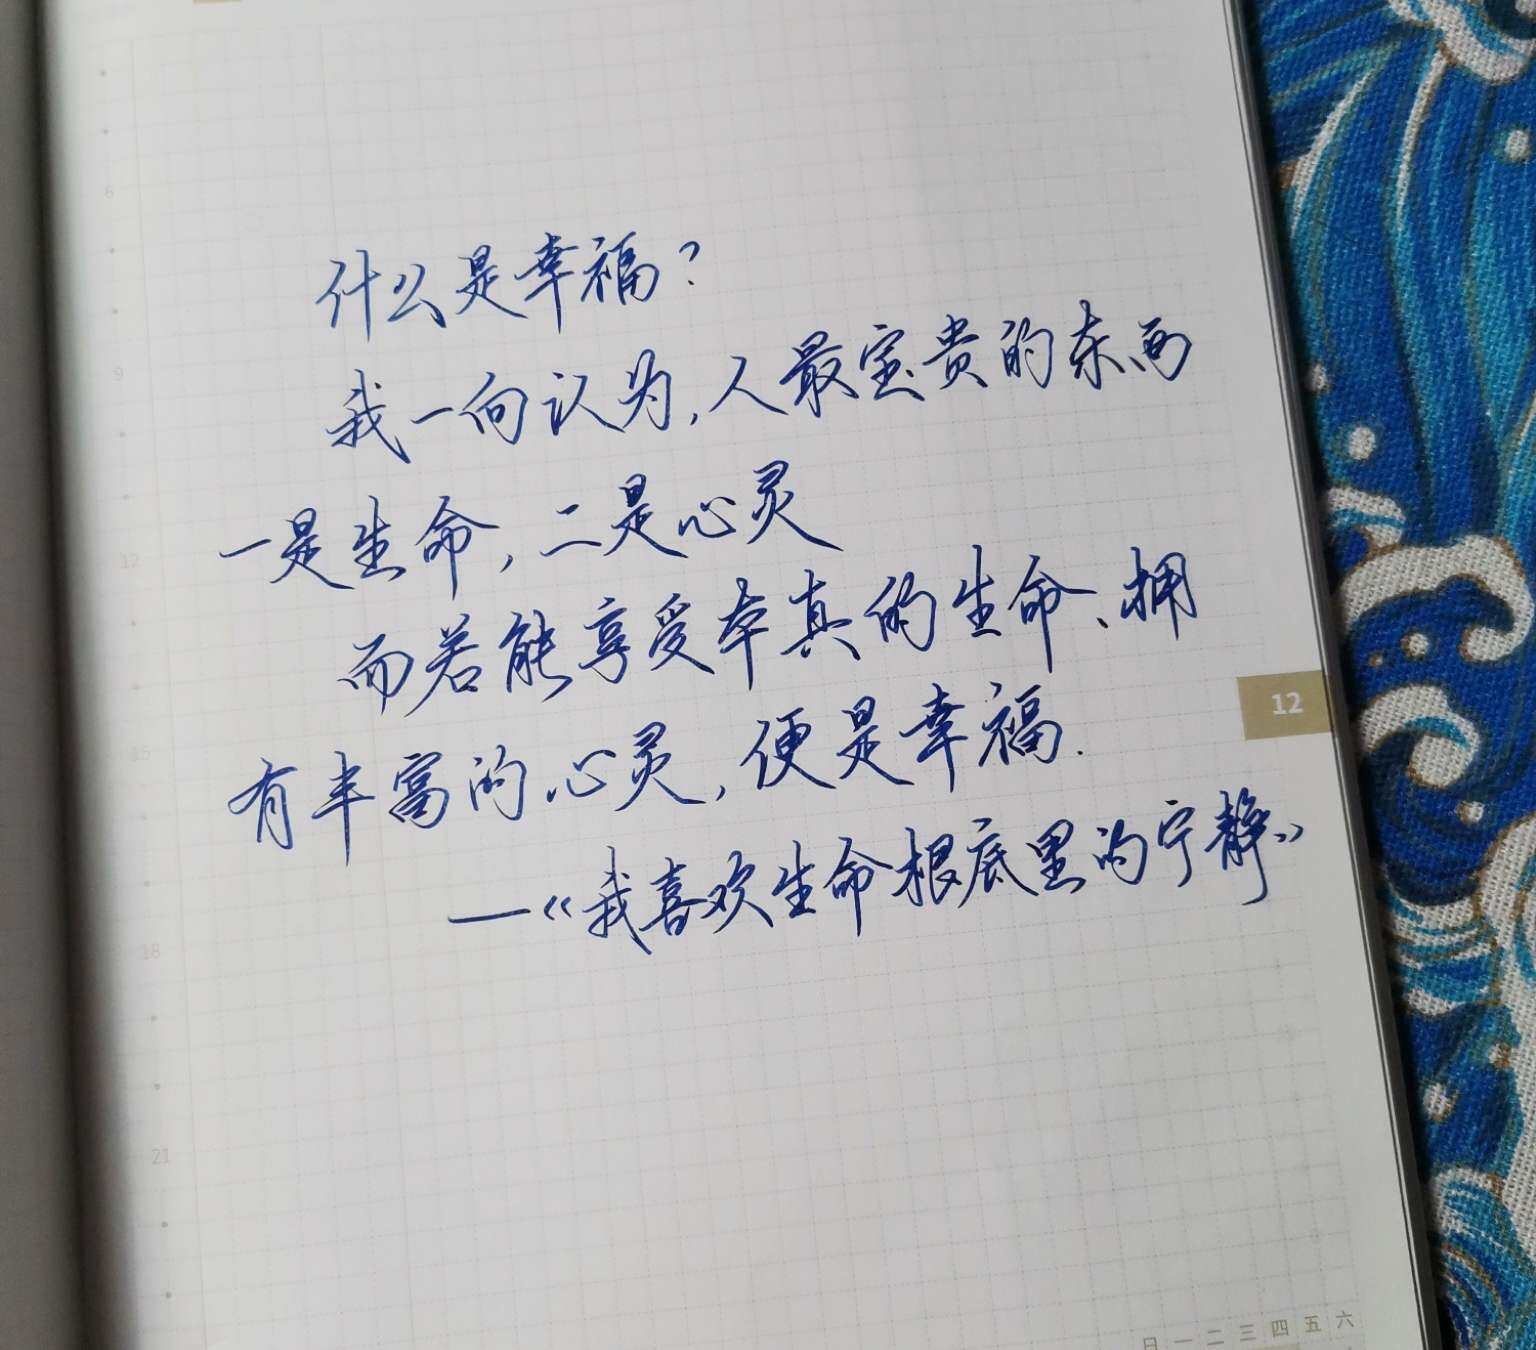 什么是幸福?
我一向认为,人最宝贵的东西
一是生命,二是心灵
而若能享受本真的生命、拥
有丰富的心灵,便是幸福.
—《我喜欢生命根底里的宁静》
6
9
12
15
18
21
12
日 一 二 三 四 五 六